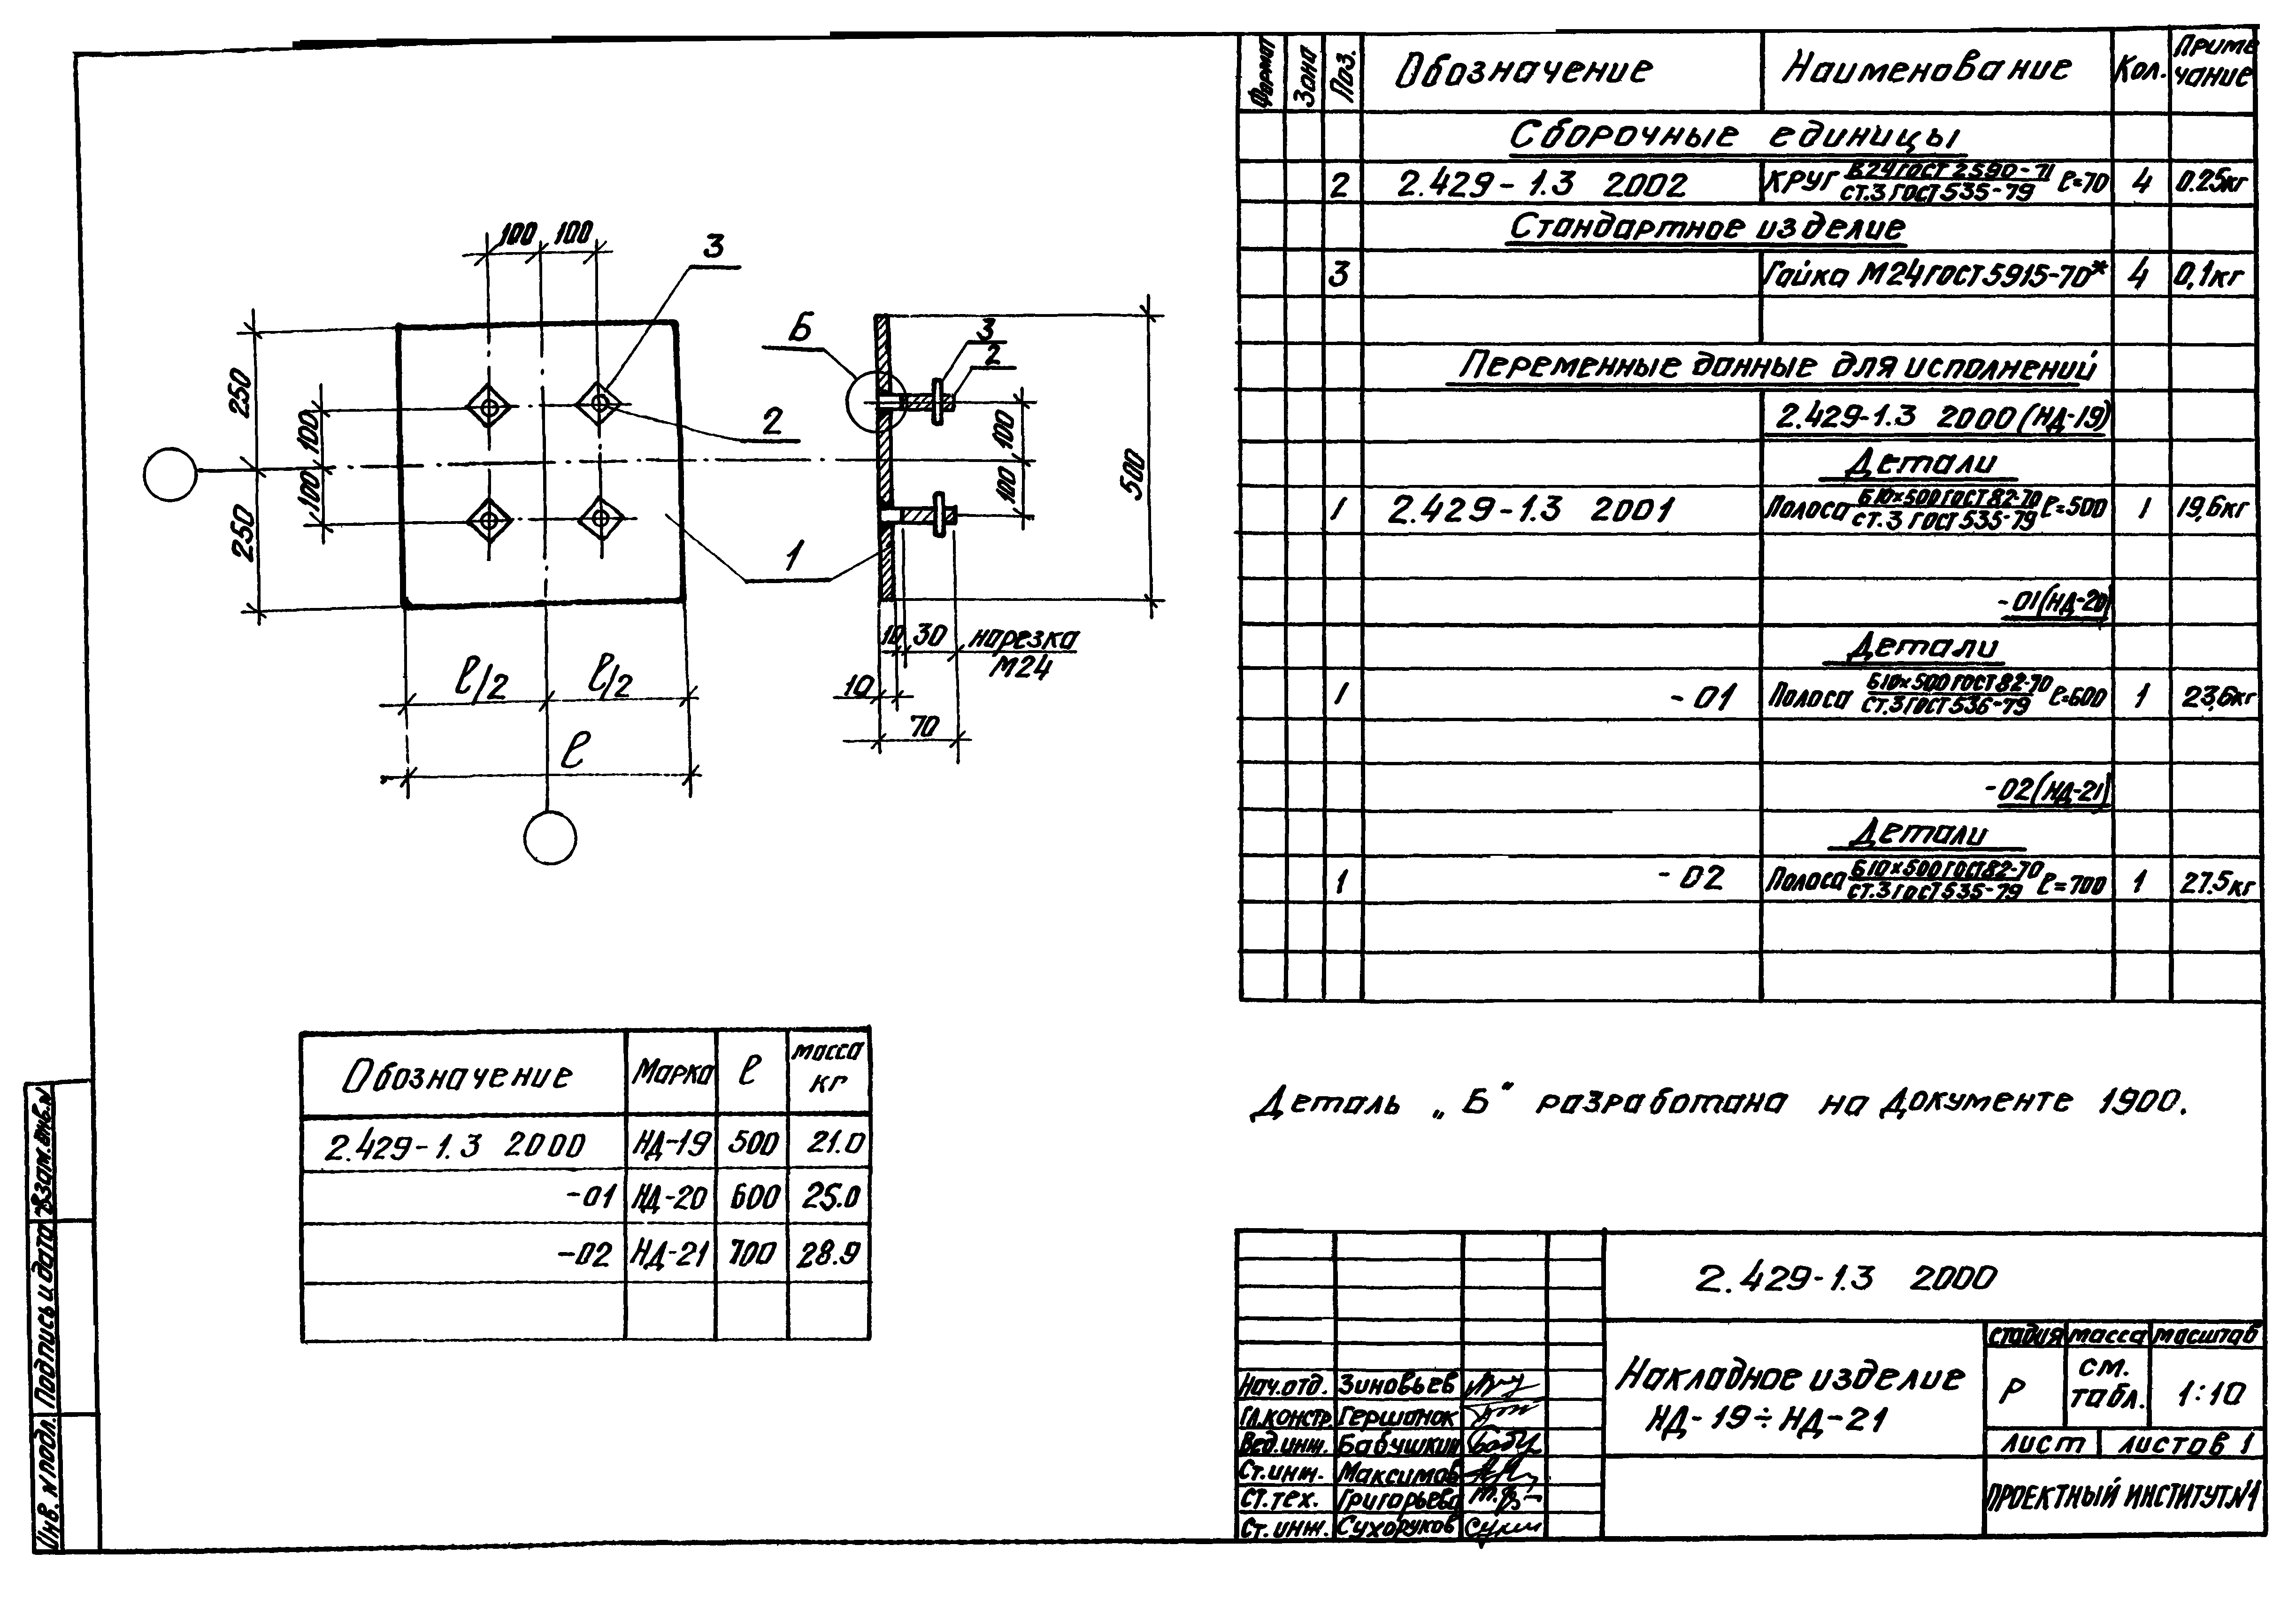 Формат Зона Поз. Обозначение Наименование Кол. Приме
чание
Сборочные единицы
2 2.429-1.3 2002 КРУГ В24 ГОСТ 2590-71 ℓ=70 4 0.25кг
Ст.3 ГОСТ 535-79
Стандартное изделие
3 Гайка М24 ГОСТ 5915-70* 4 0,1кг
Переменные данные для исполнений
2.429-1.3 2000 (НД-19)
Детали
1 2.429-1.3 2001 Полоса Б10×500 ГОСТ 82-70 ℓ=500 1 19,6кг
Ст.3 ГОСТ 535-79
-01 (НД-20)
Детали
1 -01 Полоса Б10×500 ГОСТ 82-70 ℓ=600 1 23,6кг
Ст.3 ГОСТ 536-79
-02 (НД-21)
Детали
1 -02 Полоса Б10×500 ГОСТ 82-70 ℓ=700 1 27.5кг
Ст.3 ГОСТ 535-79
100 100
3
2
1
250
250
100
100
ℓ/2 ℓ/2
ℓ
Б
3
2
100
100
500
10 30 нарезка
М24
10
70
Обозначение Марка ℓ масса
кг
2.429-1.3 2000 НД-19 500 21.0
-01 НД-20 600 25.0
-02 НД-21 700 28.9
Деталь „Б" разработана на документе 1900.
2.429-1.3 2000
Накладное изделие
НД-19÷НД-21
стадия масса масштаб
Р см.
табл. 1:10
лист листов 1
ПРОЕКТНЫЙ ИНСТИТУТ №1
Нач.отд. Зиновьев
Гл.констр. Гершанок
Вед.инж. Бабушкин
Ст.инж. Максимов
Ст.тех. Григорьева
Ст.инж. Сухоруков
Взам.инв.N
Подпись и дата
Инв. N подл.